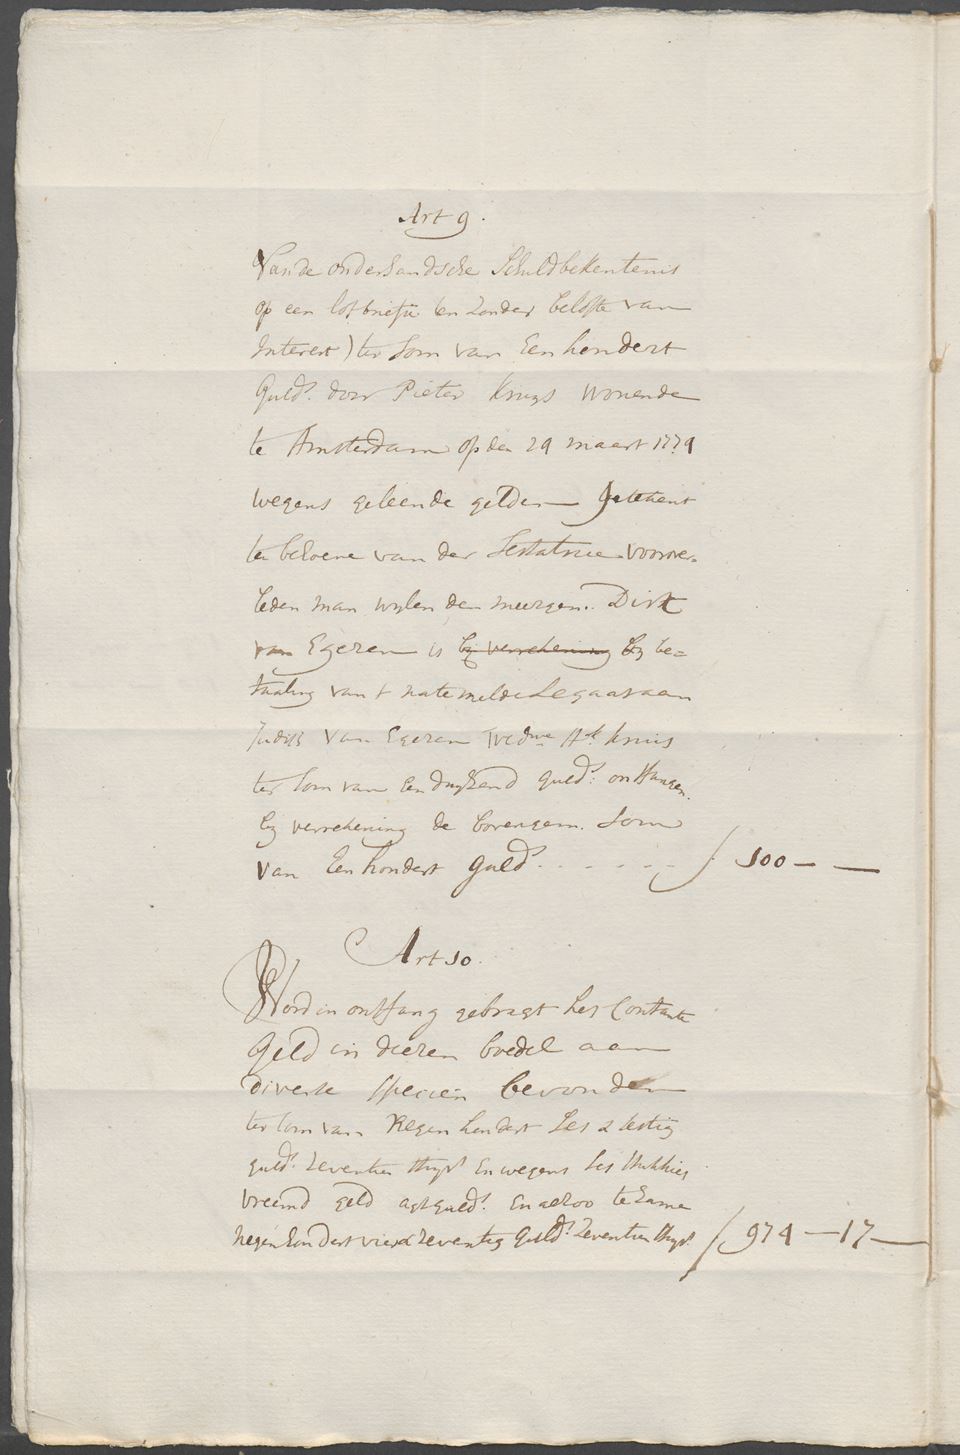 Art 9.
Van de onderhandsche Schuldbekentenis
op een los briefie (en zonder belofte van
Interest) ter Som van Een hondert
Guld.s door Pieter Kruijs wonende
te Amsterdam op den 29 maart 1779
wegens geleende gelden getekent
te behoeve van der Testatrice voorover-
leden man wylen den meergen. Dirk
van Egeren is by verrekening By be=
taaling van t natemelde Legaat aan
Judith van Egeren Wed.we Kruis
ter Som van Een duyzend guld.s ontvangen
by verrekening de bovengem. Som
van Een hondert guld.s - - - - - ƒ 100 — —
Art 10.
Word in ontfang gebragt het Contante
Geld in deezen boedel aan
diverse specien bevonden
ter som van Negen hondert ses & sestig
guld.s zeventien stuyv.s En wegens ses stukkies
vreemd geld agt guld.s En alzoo te zame
negen hondert vier & zeventig guld.s zeventien stuyv.s ƒ 974 — 17 —